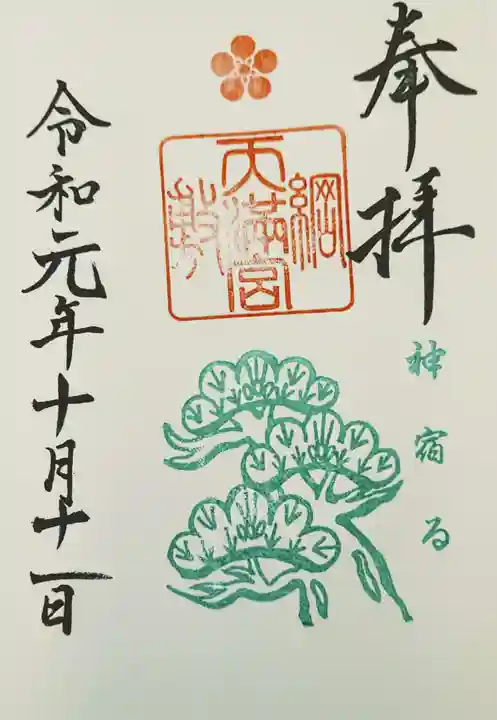 奉拝
神宿る
綱
天満宮
敷
令和元年十月十一日